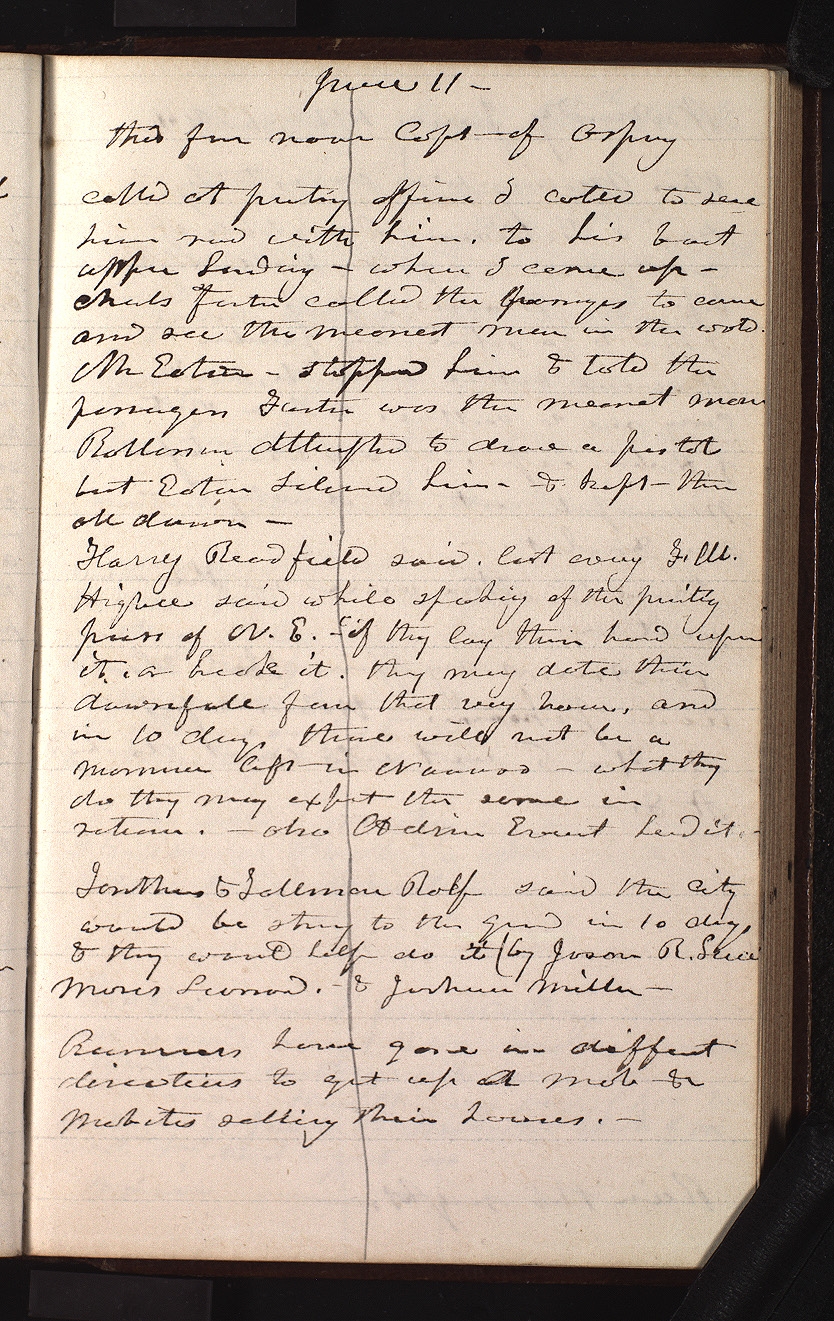 June 11 —
this fore noon Capt— of Osprey
called at printing office I called to see
him rode with him. to his boat
upper landing — when I came up —
Charls Foster called the passengers to come
and see the meanest man in the world.
Mr Eaton — stopped him & told the
passengers Foster was the meanest man
Rollosson attempted to draw a pistol
but Eaton silencd him — & kept— them
all down —
Harry Readfield said. last eveng F. M.
Higbee said while speakig of the printig
press of N. E. — "if they lay their hand upon
it. or break it. they may date their
downfall from that very hour, and
in 10 days there will not be a
mormon left in Nauvoo — what they
do they may expect the same in
return. — also Addison Everett heard it. —
Jonthas & Tallman Rolf said the city
would be strung to the ground in 10 days
& they would help do it (by Jason R. Luse
Moris Leonard. — & Joshua Miller —
Runners have gone in diffent
directions to get up a mob — &
Mobites selling their houses. —